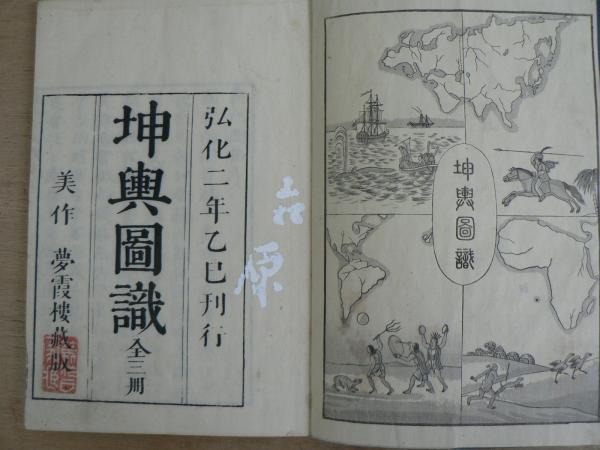 弘化二年乙巳刊行
坤輿圖識
全三冊
美作 夢霞樓藏版
六原
坤輿圖識